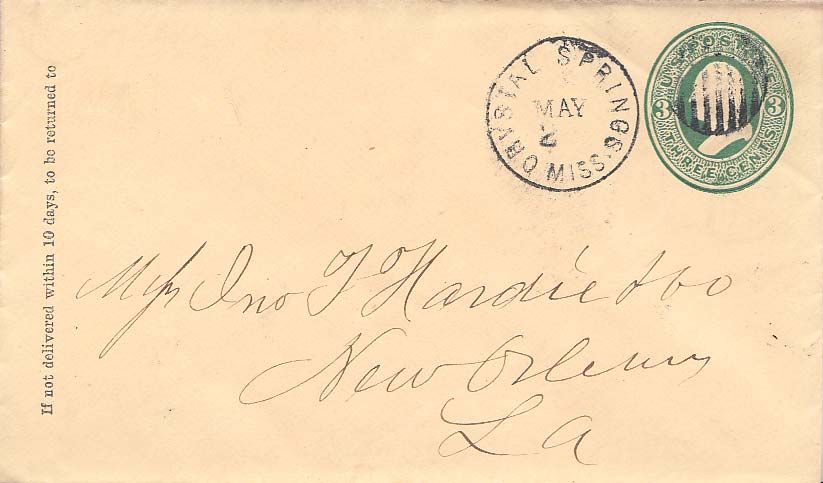 If not delivered within 10 days, to be returned to
CRYSTAL SPRINGS. MISS.
MAY
2
U.S. POSTAGE
3 3
THREE CENTS
Mess Jno T Hardie & Co
New Orleans
La